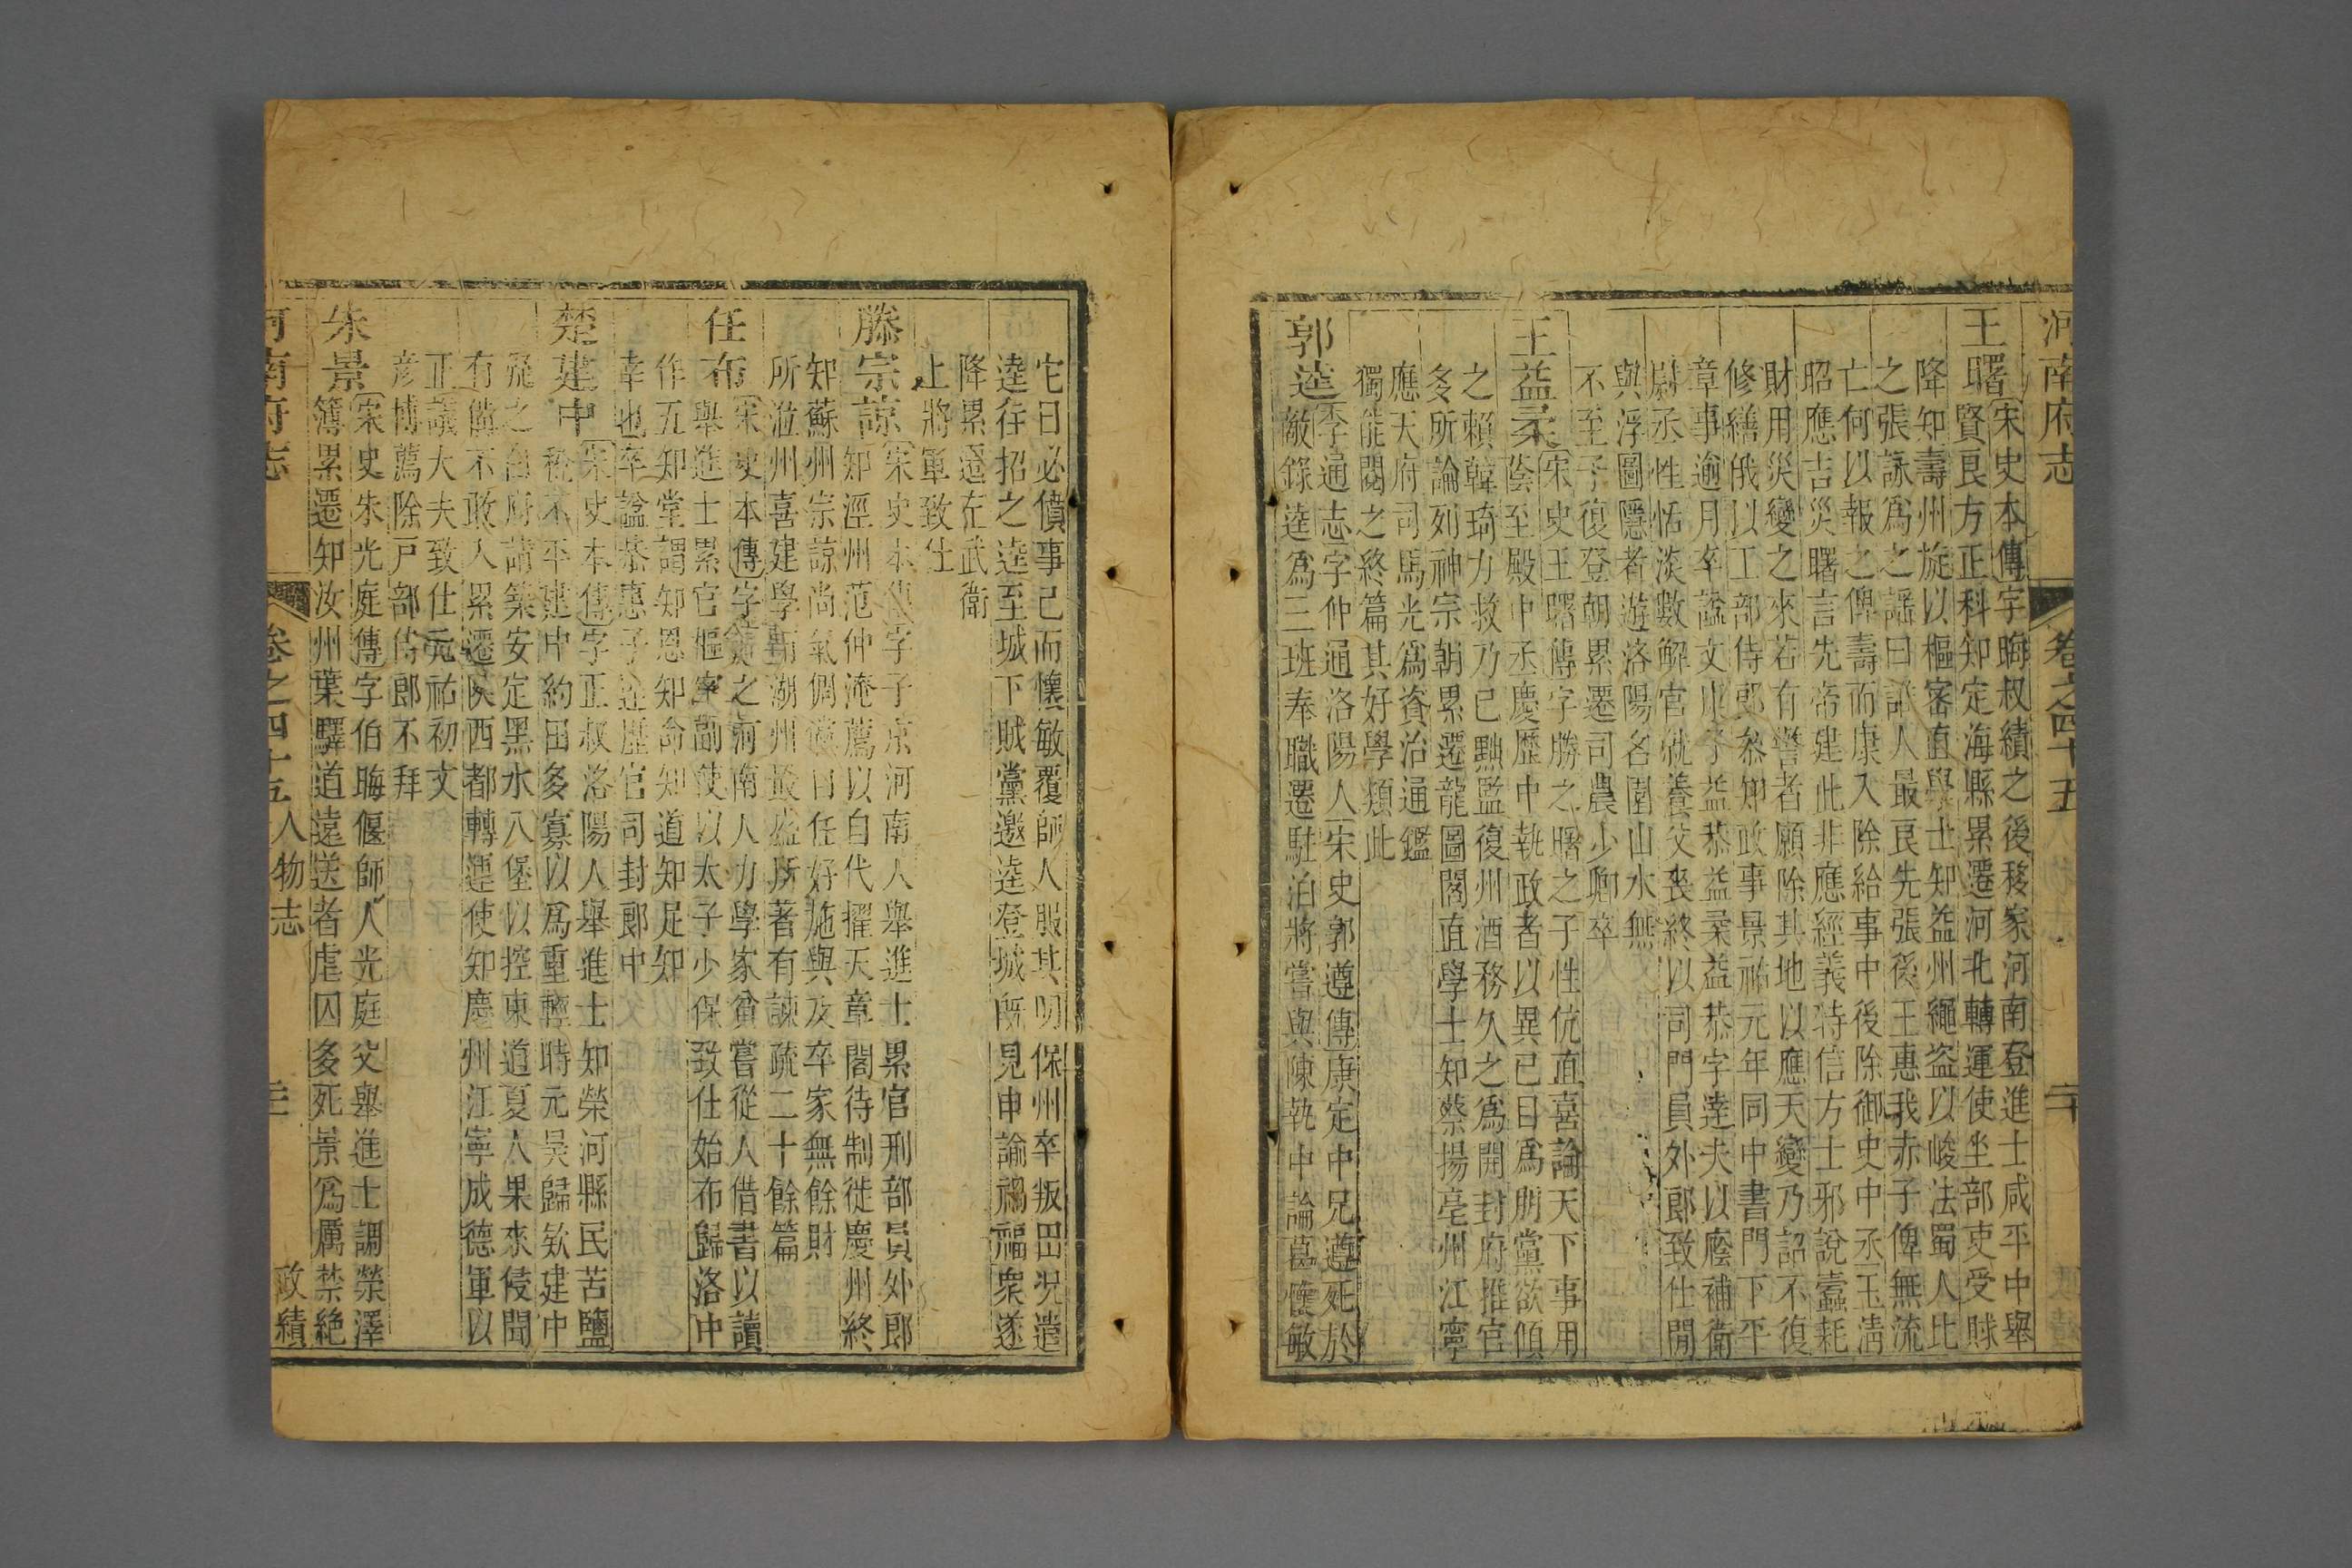 河南府志
卷之四十五
二十
王曙宋史本傳字晦叔績之後移家河南登進士咸平中舉
賢良方正科知定海縣累遷河北轉運使坐部吏受賕
降知壽州旋以樞密直學士知益州繩盜以峻法蜀人比
之張詠為之謡曰蜀人最良先張後王惠我赤子俾無流
亡何以報之俾壽而康入除給事中後除御史中丞玉清
昭應吉災曙言先帝建此非應經義特信方士邪說蠹耗
財用災變之來若有警者願除其地以應天變乃詔不復
修繕俄以工部侍郎叅知政事景祐元年同中書門下平
章事逾月卒謚文康子益恭益柔益恭字達夫以廕補衛
尉丞性恬淡數解官就養父喪終以司門員外郎致仕閒
與浮圖隱者遊洛陽名園山水無
不至子復登朝累遷司農少卿卒
王益柔宋史王曙傳字勝之曙之子性伉直喜論天下事用
蔭至殿中丞慶歷中執政者以異已日爲朋黨欲傾
之賴韓琦力救乃已黜監復州酒務久之爲開封府推官
多所論列神宗朝累遷龍圖閣直學士知蔡揚亳州江寧
應天府司馬光爲資治通鑑
獨能閱之終篇其好學類此
郭逵季通志字仲通洛陽人宋史郭遵傳康定中兄遵死於
敵錄逵爲三班奉職遷駐泊將嘗與陳執中論葛懷敏
它日必僨事已而懷敏覆師人服其明保州卒叛田況遣
逵往招之逵至城下賊黨邀逵登城旣見申論禍福衆遂
降累遷左武衛
上將軍致仕
滕宗諒宋史本傳字子京河南人舉進士累官刑部員外郎
知涇州范仲淹薦以自代擢天章閣待制徙慶州終
知蘇州宗諒尚氣倜儻自任好施與及卒家無餘財
所涖州喜建學而湖州最盛所著有諫疏二十餘篇
任布宋史本傳字應之河南人力學家貧嘗從人借書以讀
舉進士累官樞密副使以太子少保致仕始布歸洛中
作五知堂謂知恩知命知道知足知
幸也卒謚恭惠子逵歷官司封郎中
楚建中宋史本傳字正叔洛陽人舉進士知榮河縣民苦鹽
稅不平建中約田多寡以爲重輕時元吴歸欵建中
從之白府請築安定黑水八堡以控東道夏人果來侵聞
有備不敢入累遷陝西都轉運使知慶州江寧成德軍以
正議大夫致仕元祐初文
彥博薦除戸部侍郎不拜
朱景宋史朱光庭傳字伯晦偃師人光庭父舉進士調榮澤
簿累遷知汝州葉驛道遠送者虐囚多死景爲厲禁絶
河南府志
卷之四十五人物志
政績